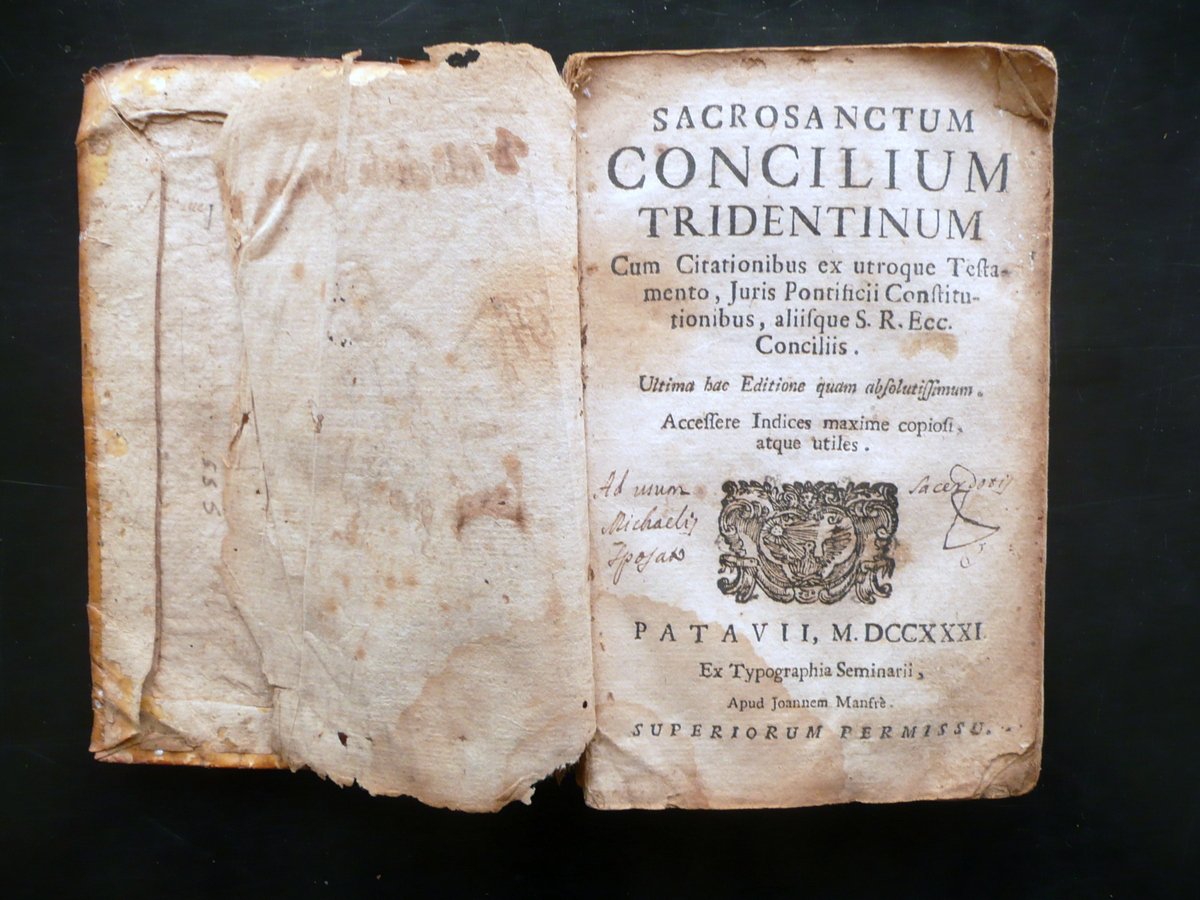 SACROSANCTUM
CONCILIUM
TRIDENTINUM
Cum Citationibus ex utroque Teſta-
mento, Juris Pontificii Conſtitu-
tionibus, aliiſque S. R. Ecc.
Conciliis.
Ultima hac Editione quam abſolutiſſimum.
Acceſſere Indices maxime copioſi,
atque utiles.
Ad usum
Michaelis
Sacerdotis
PATAVII, M. DCCXXXI
Ex Typographia Seminarii,
Apud Joannem Manfrè.
SUPERIORUM PERMISSU.